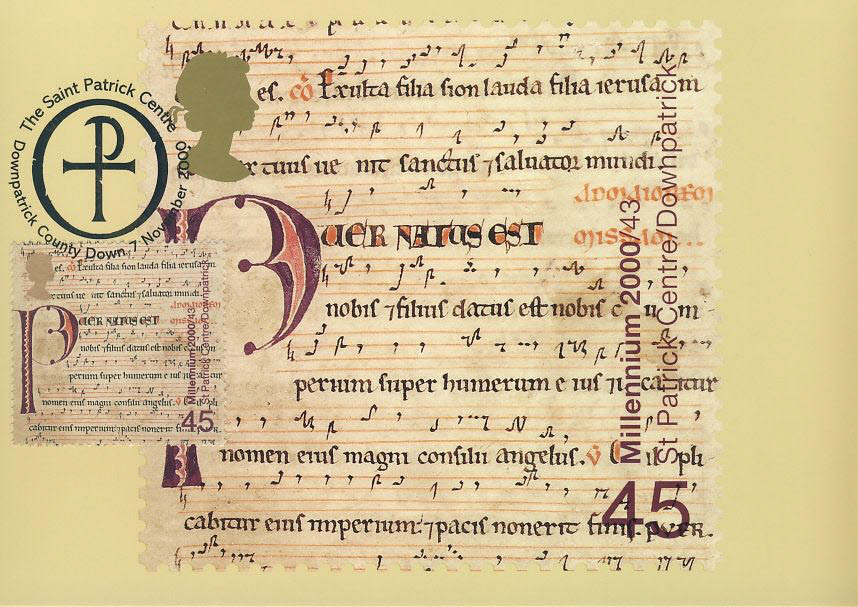 The Saint Patrick Centre
Downpatrick County Down 7 November 2000
es. co Exulta filia sion lauda filia ierusalem
r tuus ue nit sanctus ⁊saluator mundi
PUER NATUS EST
nobis ⁊filius datus est nobis c u m
perium super humerum e ius ⁊ cabitur
nomen eius magni consilii angelus. V C pli
cabitur eius imperium:⁊pacis nonerit finis. PUER.
Millennium 2000/43
St Patrick Centre/Downpatrick
45
es. co Exulta filia sion lauda filia ierusalem
r tuus ue nit sanctus ⁊saluator mundi
PUER NATUS EST
nobis ⁊filius datus est nobis
perium super humerum e ius
nomen eius magni consilii angelus.
cabitur eius imperium:⁊pacis nonerit
Millennium 2000/43
St Patrick Centre/Downpatrick
45